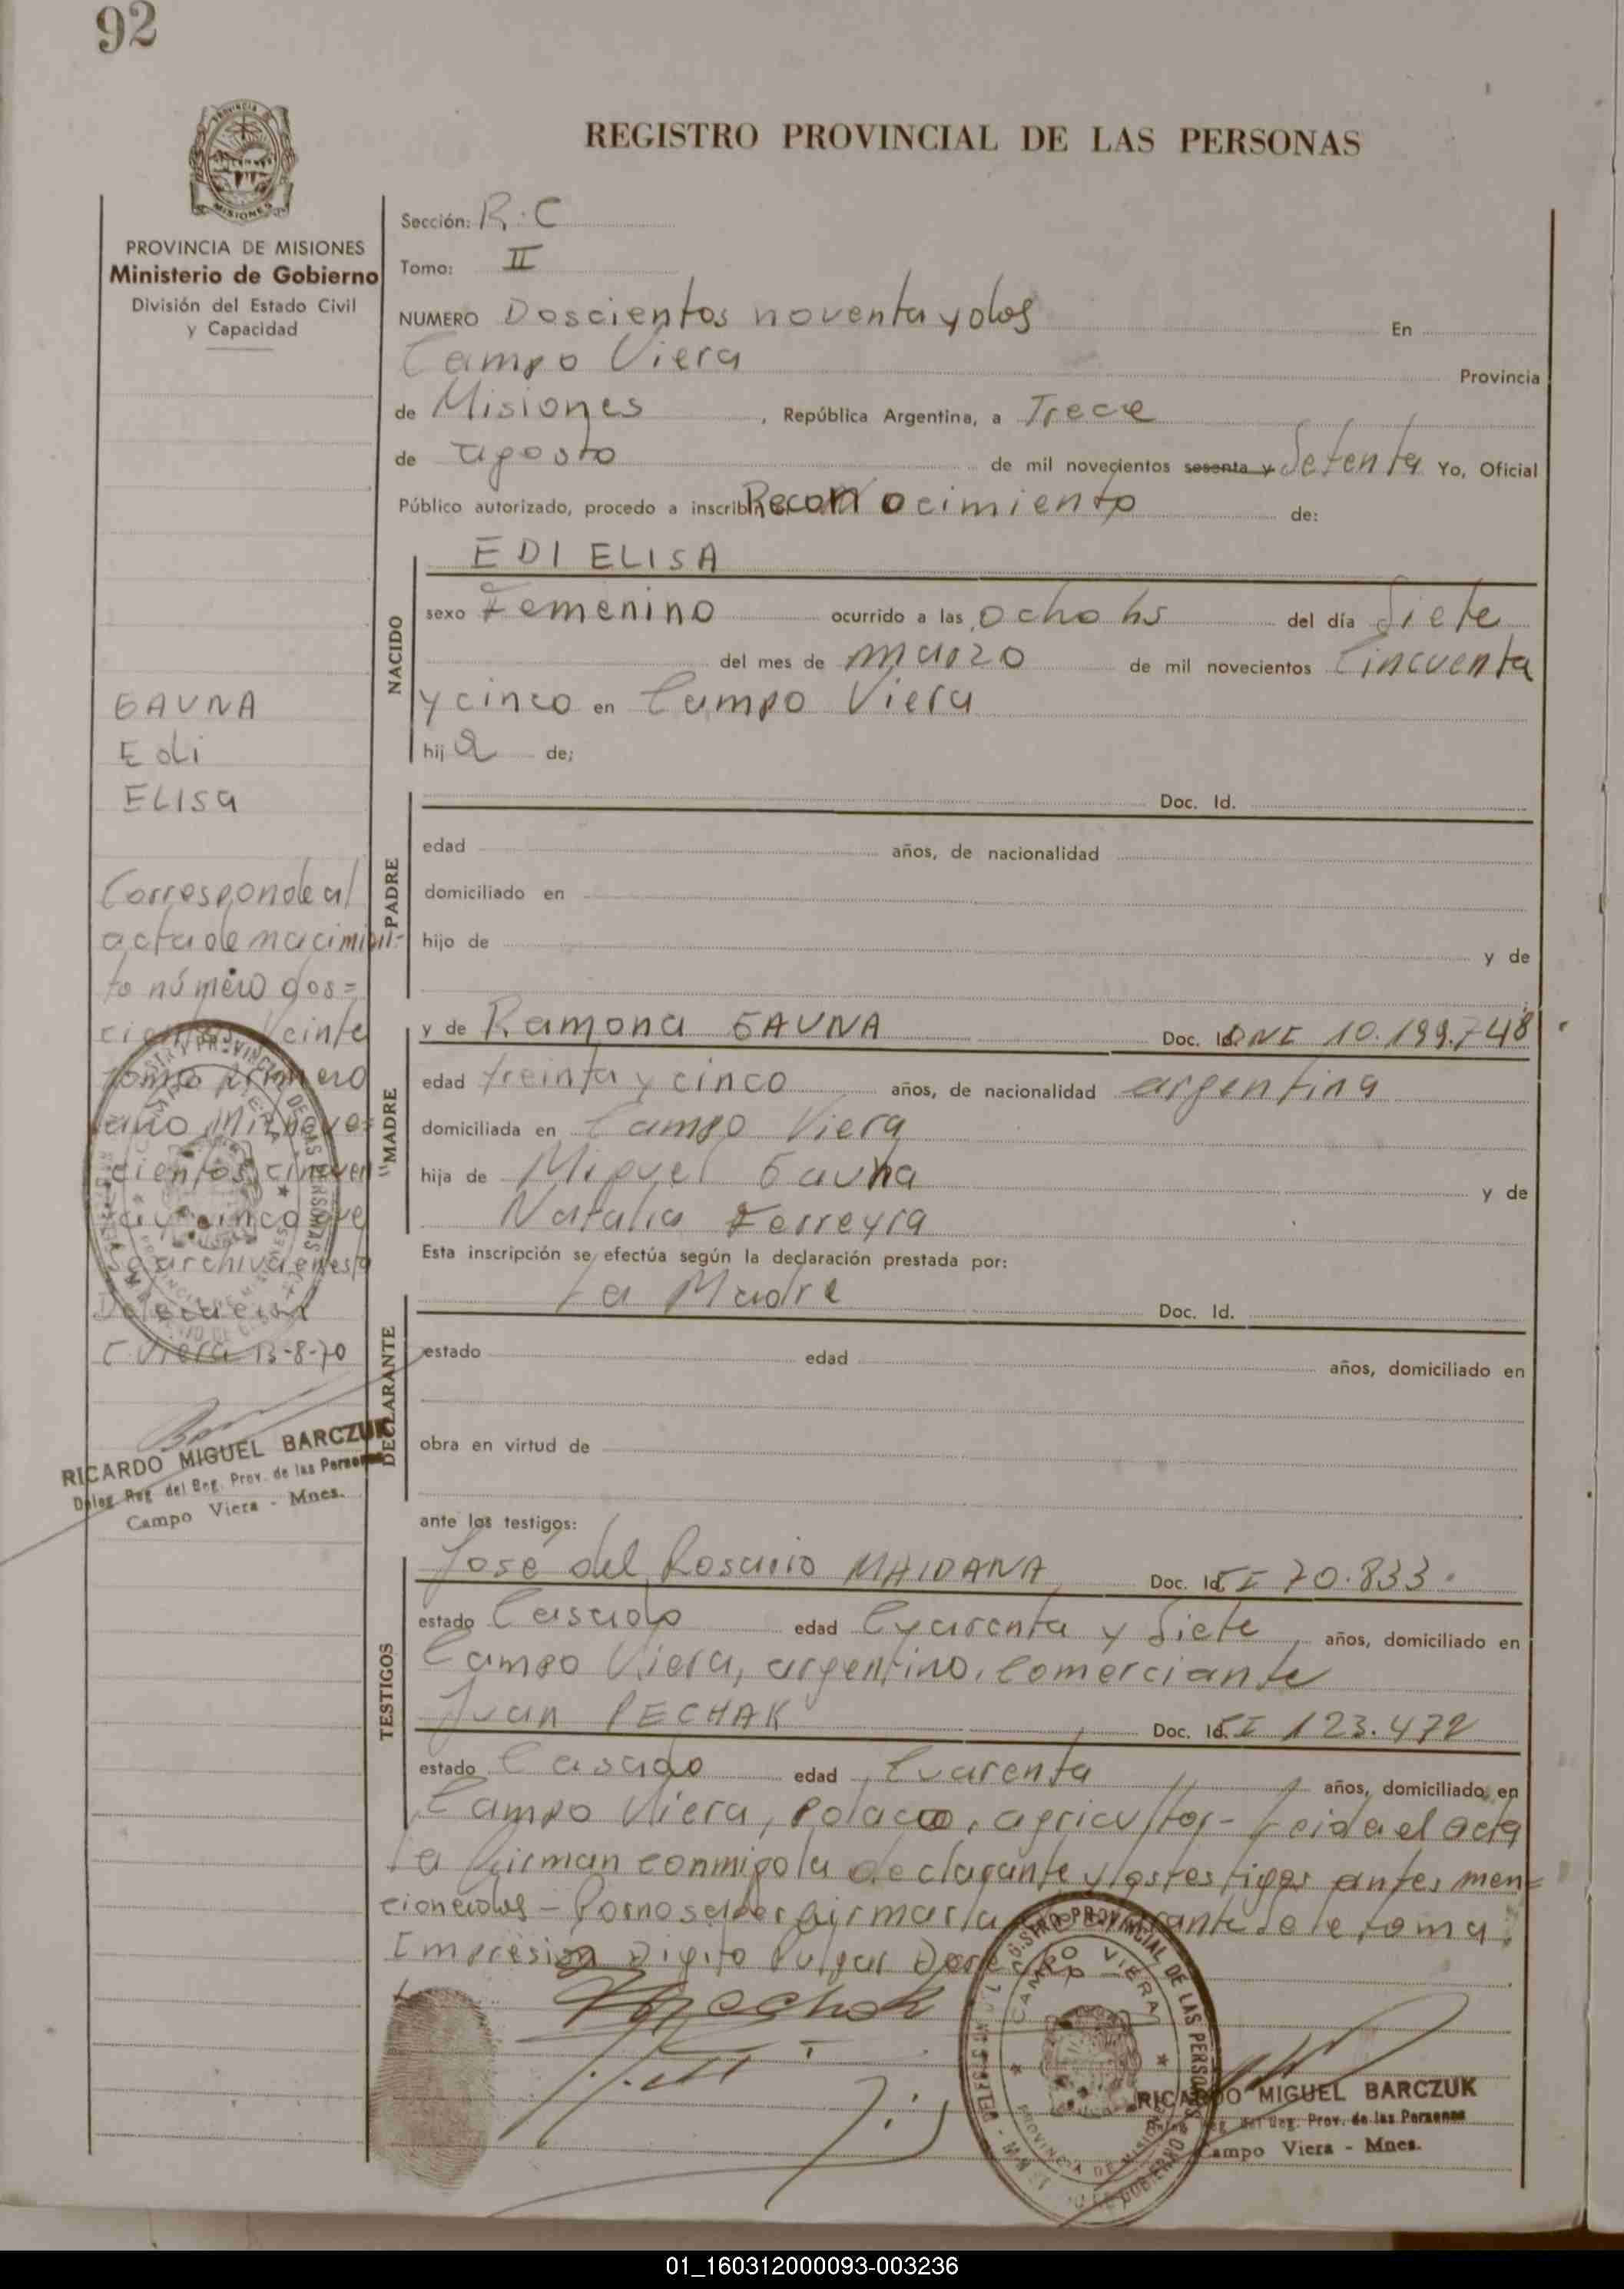 92
PROVINCIA
MISIONES
REGISTRO PROVINCIAL DE LAS PERSONAS
PROVINCIA DE MISIONES
Ministerio de Gobierno
División del Estado Civil
y Capacidad
Sección: R.C
Tomo: II
NUMERO Doscientos noventa y dos En
Campo Viera Provincia
de Misiones, República Argentina, a Trece
de agosto de mil novecientos sesenta y Setenta Yo, Oficial
Público autorizado, procedo a inscribir Reconocimiento de:
NACIDO
EDI ELISA
sexo Femenino ocurrido a las ocho hs del día Siete
del mes de marzo de mil novecientos Cincuenta
y cinco en Campo Viera
hija de;
GAUNA
Edi
ELISA
Corresponde al
acta de nacimien-
to número dos=
cientos veinte
tomo primero
año mil nove=
cientos cincuen
ta y cinco que
se archiva en esta
Delegacion
C. Viera 13-8-70
RICARDO MIGUEL BARCZUK
Deleg. Reg. del Reg. Prov. de las Personas
Campo Viera - Mnes.
PADRE
Doc. Id.
edad años, de nacionalidad
domiciliado en
hijo de y de
MADRE
y de Ramona GAUNA Doc. Id. DNI 10.199.748
edad treinta y cinco años, de nacionalidad argentina
domiciliada en Campo Viera
hija de Miguel Gauna y de
Natalia Ferreyra
Esta inscripción se efectúa según la declaración prestada por:
DECLARANTE
La Madre Doc. Id.
estado edad años, domiciliado en
obra en virtud de
ante los testigos:
TESTIGOS
José del Rosario MAIDANA Doc. Id. CI 70.833.
estado Casado edad Cuarenta y Siete, años, domiciliado en
Campo Viera, argentino, Comerciante
Juan PECHAK Doc. Id. CI 123.472
estado Casado edad Cuarenta años, domiciliado en
Campo Viera, Polaco, agricultor- Leida el acta
La firman conmigo la declarante y los testigos antes men=
cionados - Por no saber firmar la declarante se le toma
Impresión Digito Pulgar Derecho
REGISTRO PROVINCIAL DE LAS PERSONAS
CAMPO VIERA
PROVINCIA DE MISIONES
RICARDO MIGUEL BARCZUK
Deleg. Reg. del Reg. Prov. de las Personas
Campo Viera - Mnes.
01_160312000093-003236